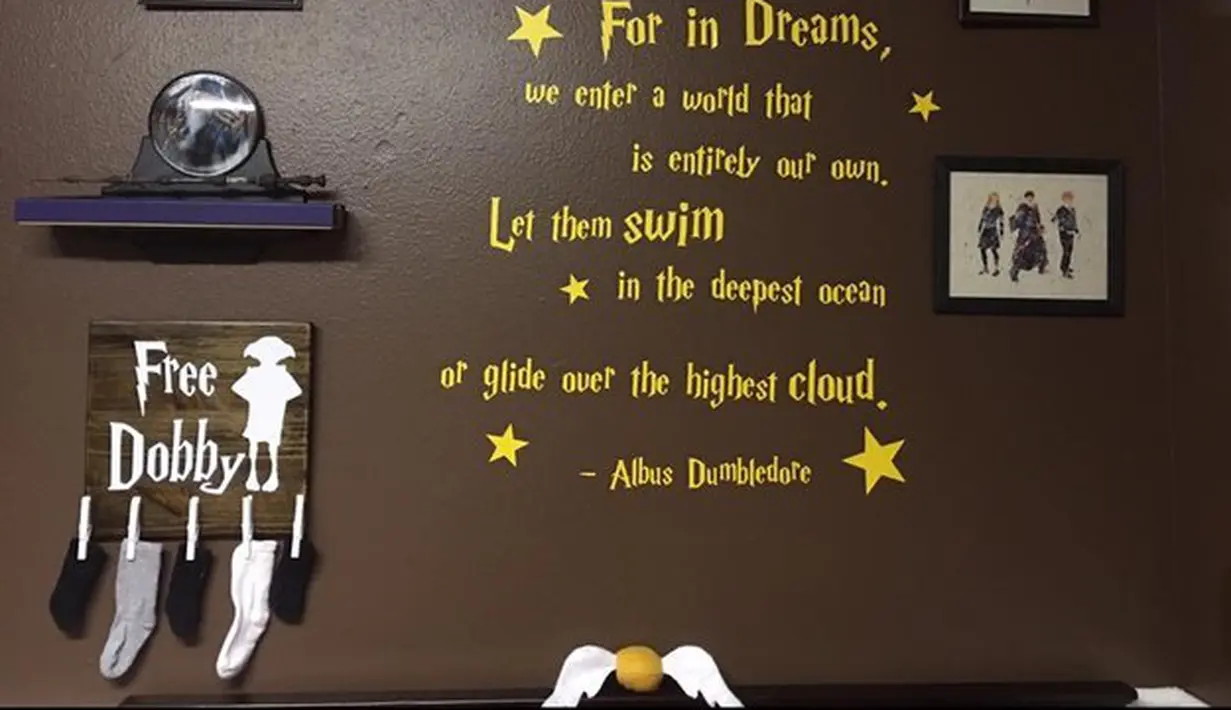 For in Dreams,
we enter a world that
is entirely our own.
Let them swim
in the deepest ocean
or glide over the highest cloud.
- Albus Dumbledore
Free
Dobby